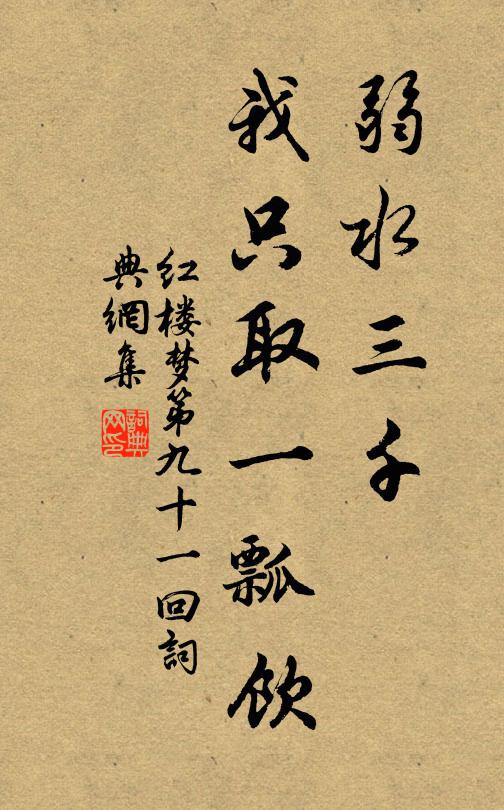 弱水三千
我只取一瓢飲
红楼梦第九十一回詞
典網集
詞典
网印